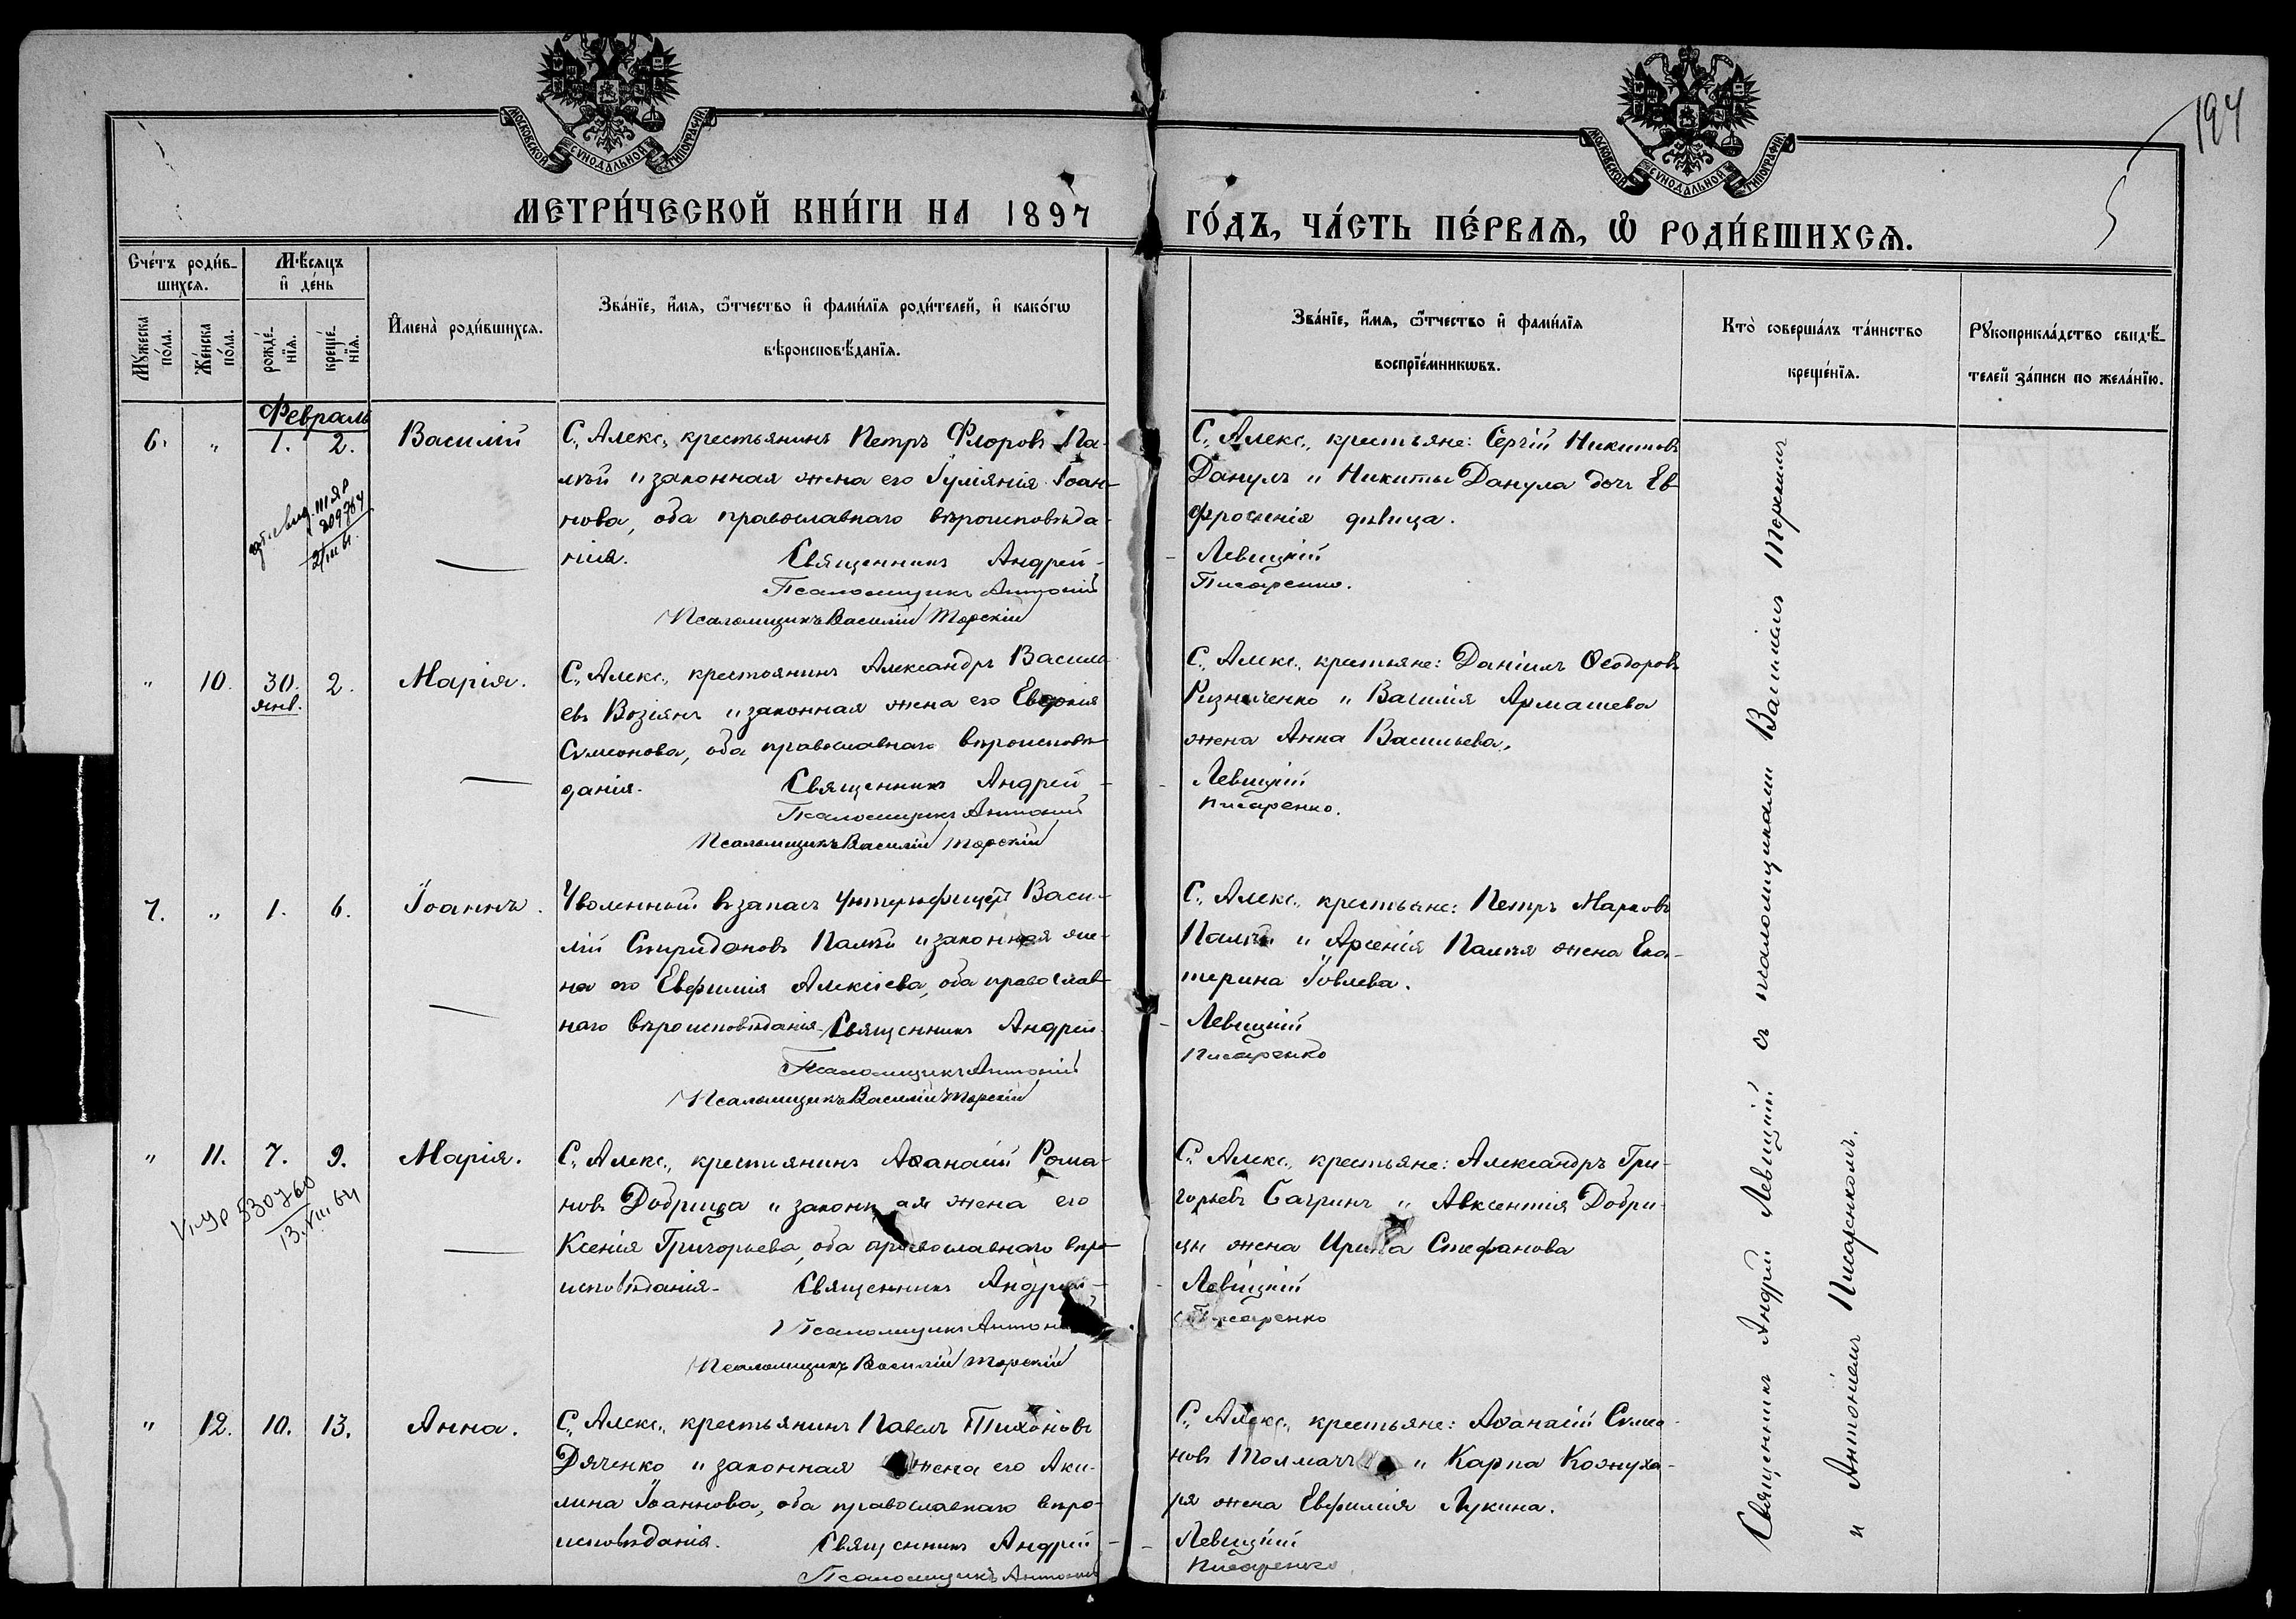 МОСКОВСКОЙ СѴНОДАЛЬНОЙ ТИПОГРАФІИ.
МОСКОВСКОЙ СѴНОДАЛЬНОЙ ТИПОГРАФІИ.
194
5
МЕТРИ́ЧЕСКОЙ КНИ́ГИ НА 1897 ГО́ДЪ, ЧА́СТЬ ПЕ́РВАѦ, Ѡ РОДИ́ВШИХСѦ.
Сче́тъ роди́в-
шихсѧ.
Мꙋ́жеска
по́ла.
Же́нска
по́ла.
Мѣ́сѧцъ
и҆ де́нь
рожде́-
нїѧ.
креще́-
нїѧ.
И҆мена̀ роди́вшихсѧ.
Зва́нїе, и҆́мѧ, ѻ҆́тчество и҆ фами́лїѧ роди́телей, и҆ како́гѡ
вѣроисповѣ́данїѧ.
Зва́нїе, и҆́мѧ, ѻ҆́тчество и҆ фами́лїѧ
воспрїе́мникѡвъ.
Кто̀ соверша́лъ та́инство
креще́нїѧ.
Рꙋкоприкла́дство свидѣ́-
телей за́писи по жела́нїю.
Февраль
6. " 1. 2. Василій
С. Алекс. крестьянинъ Петръ Флоровъ Па-
лій и законная жена его Іуліянія Іоан-
нова, оба православнаго вѣроисповѣда-
нія. Священникъ Андрей
Псаломщикъ Антоній
Псаломщикъ Василій Торскій
С. Алекс. крестьяне: Сергій Никитовъ
Данулъ и Никиты Данула дочь Ев-
фросинія дѣвица.
Левицкій
Писаренко.
III ЯР
209764
" 10. 30. янв. 2. Марія.
С. Алекс. крестьянинъ Александръ Василь-
евъ Возіянъ и законная жена его Евфимія
Сѵмеонова, оба православнаго вѣроисповѣ-
данія. Священникъ Андрей
Псаломщикъ Антоній
Псаломщикъ Василій Торскій
С. Алекс. крестьяне: Даніилъ Ѳеодоровъ
Ризниченко и Василія Армашева
жена Анна Васильева.
Левицкій
Писаренко.
7. " 1. 6. Іоаннъ.
Уволенный въ запасъ унтеръ-офицеръ Васи-
лій Спиридоновъ Палій и законная же-
на его Евфимія Алексіева, оба православ-
наго вѣроисповѣданія. Священникъ Андрей
Псаломщикъ Антоній
Псаломщикъ Василій Торскій
С. Алекс. крестьяне: Петръ Марковъ
Палій и Арсенія Палія жена Ека-
терина Іовлева.
Левицкій
Писаренко
" 11. 7. 9. Марія.
С. Алекс. крестьянинъ Аѳанасій Рома-
новъ Добрица и законная жена его
Ксенія Григорьева, оба православнаго вѣро-
исповѣданія. Священникъ Андрей
Псаломщикъ Антоній
Псаломщикъ Василій Торскій
С. Алекс. крестьяне: Александръ Гри-
горьевъ Багринъ и Авксентія Добри-
цы жена Ирина Стефанова
Левицкій
Писаренко
530760
13.VIII 64
" 12. 10. 13. Анна.
С. Алекс. крестьянинъ Павелъ Тихоновъ
Дяченко и законная жена его Аки-
лина Іоаннова, оба православнаго вѣро-
исповѣданія. Священникъ Андрей
Псаломщикъ Антоній
С. Алекс. крестьяне: Аѳанасій Сѵмео-
новъ Толмачъ и Карпа Кожуха-
ря жена Евфимія Лукина.
Левицкій
Писаренко
Священникъ Андрей Левицкій съ псаломщиками Василіемъ Торскимъ
и Антоніемъ Писаренкомъ.